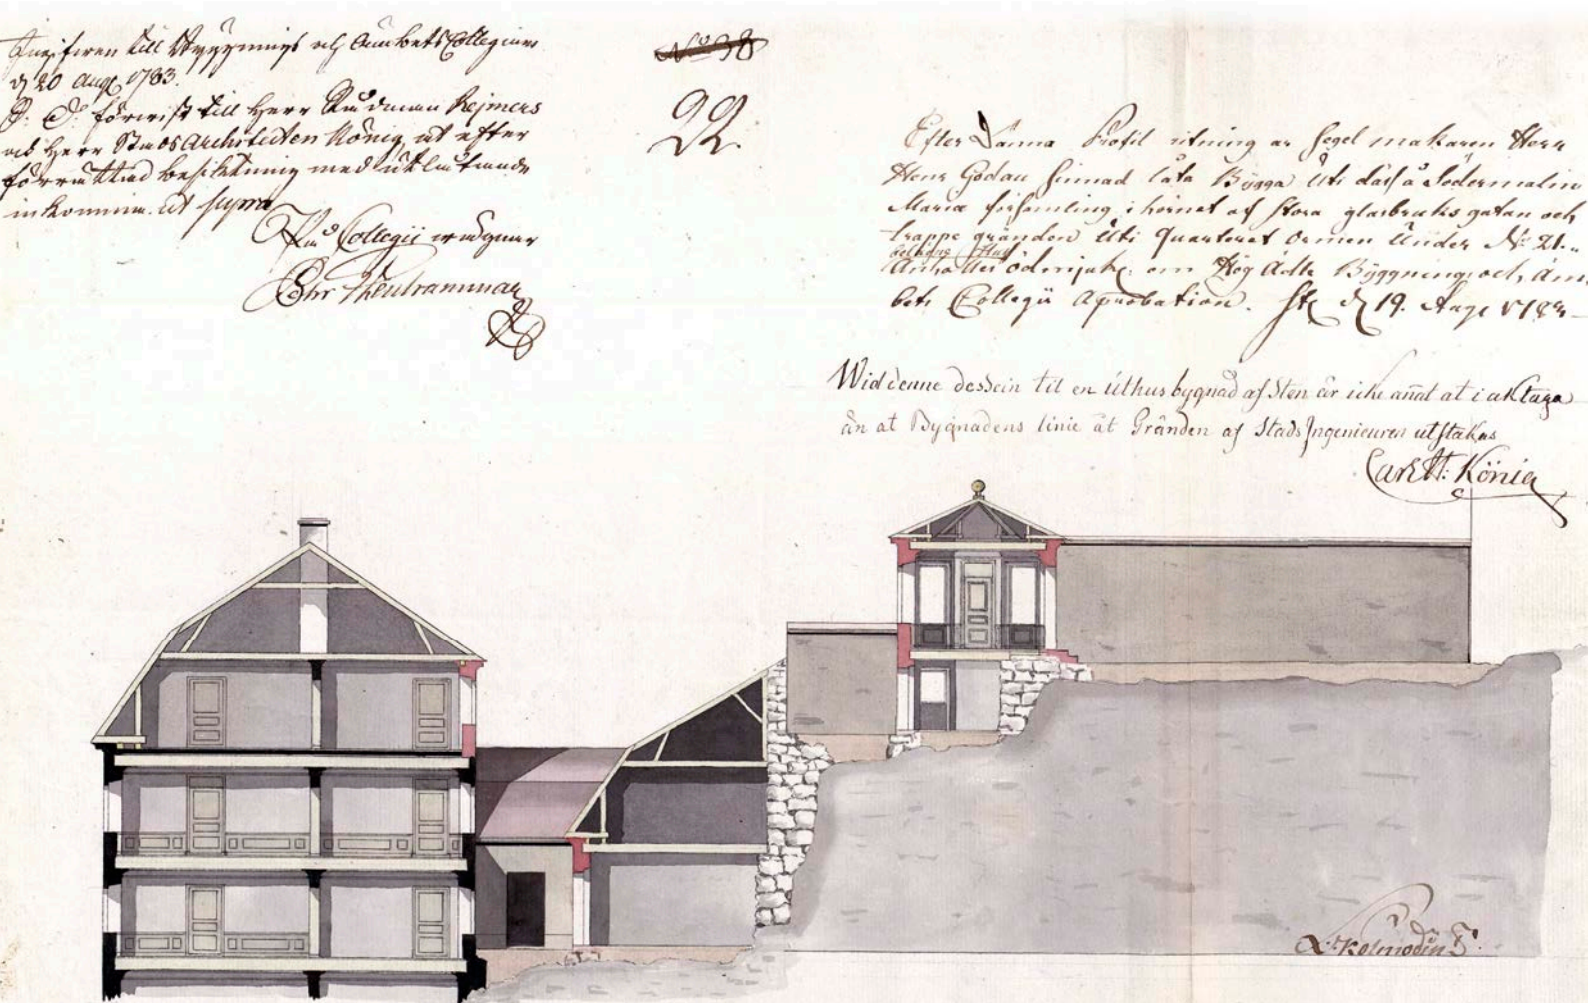 till Byggnings och Ämbets Collegium
d 20 Aug. 1783.
S. D. förwist till Herr Rådman Rejmers
och Herr Stads Architecten König, at efter
förrättad besiktning med utlåtande
inkomma. ut supra
Collegii wägnar
No 38
22.
Efter Denna Profil ritning är Segel makaren Herr
Hens Godau sinnad låta Bygga Uti dess å Södermalm
Maria församling i hörnet af Stora glasbruks gatan och
trappe gränden Uti Quarteret Ormen Under No 21.
belägne
Anhålles ödmjuk. om Hög Ädle Byggnings och Äm
bets Collegii Aprobation. St d 19. Aug 178
Wid denne dessein til en uthusbygnad af Sten är icke annat at i aktaga
än at Bygnadens linie åt Gränden af Stads Ingenieuren utstakas
Carl H: König
Kolmodin